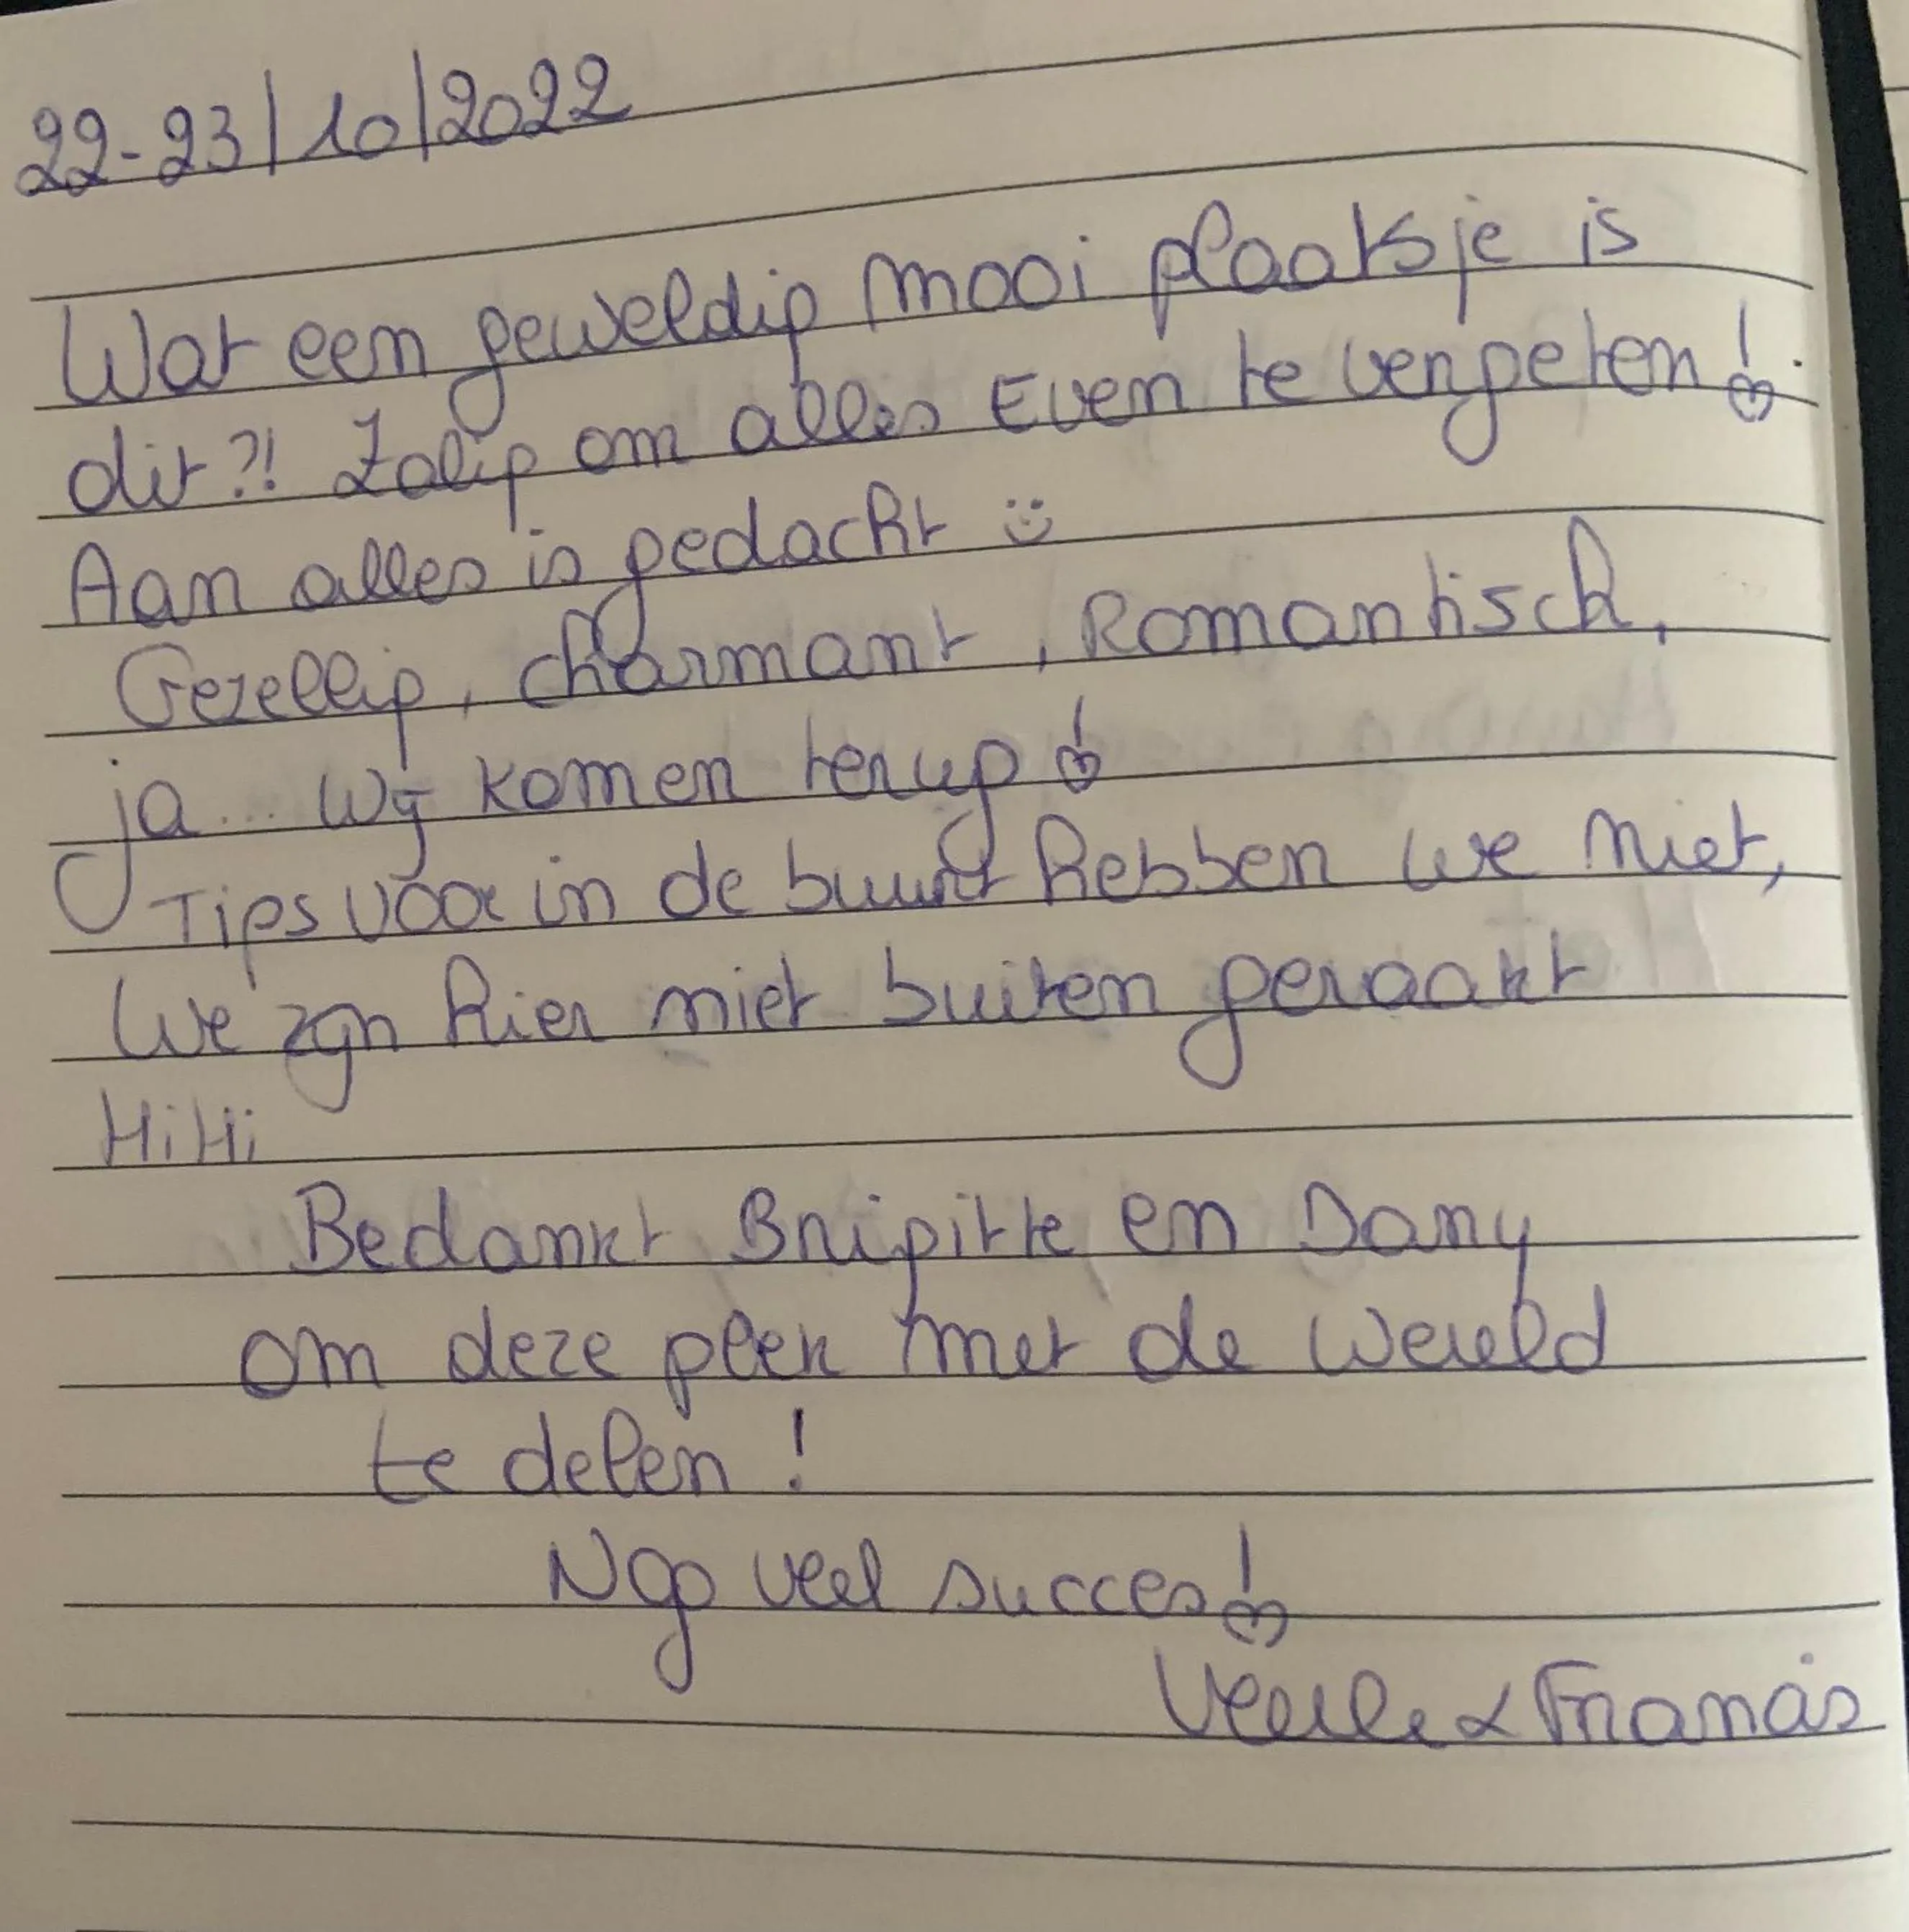 22-23/10/2022
Wat een geweldig mooi plaatsje is
dit?! Zalig om alles Even te vergeten!
Aan alles is gedacht
Gezellig, charmant, Romantisch,
ja... wij komen terug!
Tips voor in de buurt hebben we niet,
We zijn hier niet buiten geraakt
HiHi
Bedankt Brigitte en Dany
om deze plek met de wereld
te delen!
Nog veel succes!
Veerle & Francis